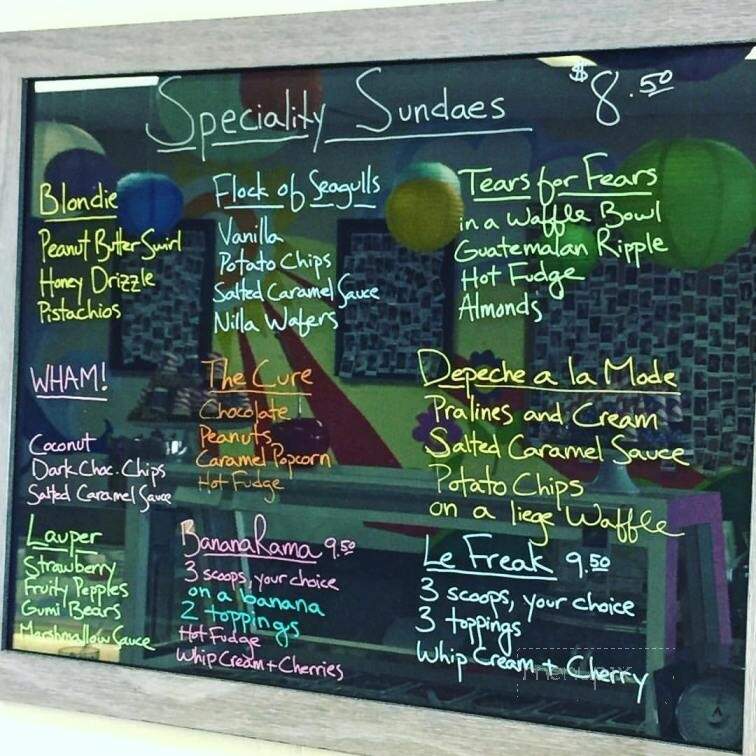 Speciality Sundaes $8.50
Blondie
Peanut Butter Swirl
Honey Drizzle
Pistachios
Flock of Seagulls
Vanilla
Potato Chips
Salted Caramel Sauce
Nilla Wafers
Tears for Fears
in a Waffle Bowl
Guatemalan Ripple
Hot Fudge
Almonds
WHAM!
Coconut
Dark Choc. Chips
Salted Caramel Sauce
The Cure
Chocolate
Peanuts
Caramel Popcorn
Hot Fudge
Depeche a la Mode
Pralines and Cream
Salted Caramel Sauce
Potato Chips
on a liege Waffle
Lauper
Strawberry
Fruity Pepples
Gumi Bears
Marshmallow Sauce
BananaRama 9.50
3 scoops, your choice
on a banana
2 toppings
Hot Fudge
Whip Cream + Cherries
Le Freak 9.50
3 scoops, your choice
3 toppings
Whip Cream + Cherry